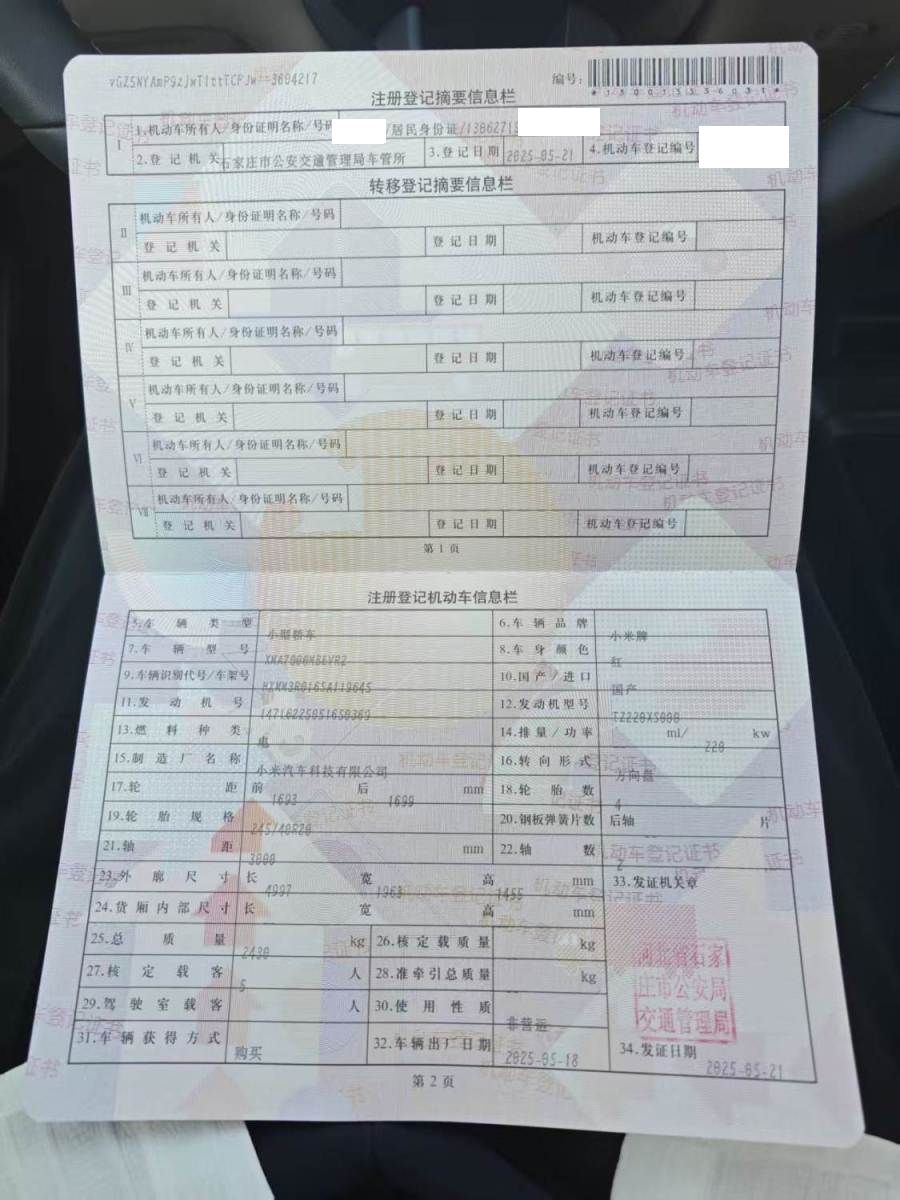 vGZ5NYAmP9zJwT1ttTCPJw==3604217
编号：
*130015336031*
注册登记摘要信息栏
I
1.机动车所有人/身份证明名称/号码 /居民身份证/1386271
2.登记机关 石家庄市公安交通管理局车管所 3.登记日期 2025-05-21 4.机动车登记编号
转移登记摘要信息栏
II
机动车所有人/身份证明名称/号码
登记机关 登记日期 机动车登记编号
III
机动车所有人/身份证明名称/号码
登记机关 登记日期 机动车登记编号
IV
机动车所有人/身份证明名称/号码
登记机关 登记日期 机动车登记编号
V
机动车所有人/身份证明名称/号码
登记机关 登记日期 机动车登记编号
VI
机动车所有人/身份证明名称/号码
登记机关 登记日期 机动车登记编号
VII
机动车所有人/身份证明名称/号码
登记机关 登记日期 机动车登记编号
第1页
注册登记机动车信息栏
5.车辆类型 小型轿车 6.车辆品牌 小米牌
7.车辆型号 8.车身颜色 红
9.车辆识别代号/车架号 10.国产/进口 国产
11.发动机号 12.发动机型号 TZ220XS000
13.燃料种类 电 14.排量/功率 ml/ 220 kw
15.制造厂名称 小米汽车科技有限公司 16.转向形式 方向盘
17.轮距 前 1693 后 1699 mm 18.轮胎数 4
19.轮胎规格 245/40R20 20.钢板弹簧片数 后轴 -- 片
21.轴距 3000 mm 22.轴数 2
23.外廓尺寸 长 4997 宽 1963 高 1455 mm 33.发证机关章
24.货厢内部尺寸 长 宽 高 mm
25.总质量 2430 kg 26.核定载质量 -- kg
27.核定载客 5 人 28.准牵引总质量 -- kg
29.驾驶室载客 人 30.使用性质 非营运
31.车辆获得方式 购买 32.车辆出厂日期 2025-05-18
河北省石家
庄市公安局
交通管理局
34.发证日期 2025-05-21
第2页